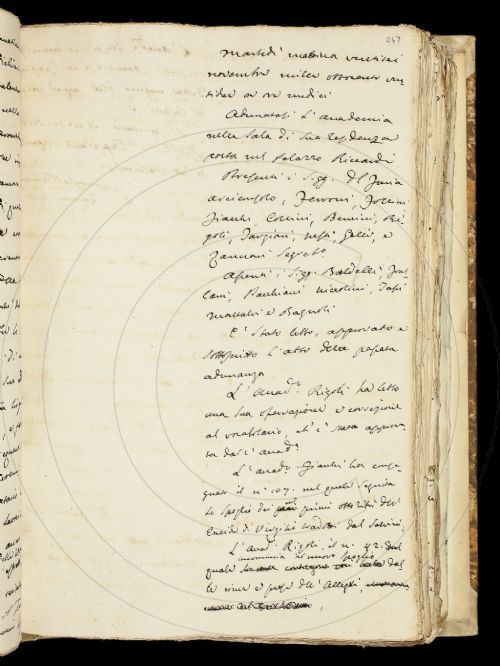 247
martedì mattina ventisei
novembre mille ottocento ven
tidue a ore undici
Adunatasi l'accademia
nella Sala di Sua residenza
posta nel Palazzo Riccardi
Presenti i Sigg. Del Furia
arciconsolo, Ferroni, Follini
Fiacchi, Collini, Bencini, Ri
goli, Targioni, Nesti, Gelli, e
Zannoni Segret.o
Assenti i Sigg. Baldelli, Font
tani, Niccolini,
e Bagnoli
E' Stato letto, approvato e
sottoscritto l'atto della passata
adunanza
L'Accad.o Rigoli ha letto
una sua osservazione e correzione
al vocabolario, ch'è stata approva
ta dall'accad.a
L'Accad.o Fiacchi ha conse
gnato il n.o 107. nel quale seguita
lo spoglio dei primi otto libri dell'
Eneide di Virgilio tradotta dal Salvini,
L'Accad. Rigoli, il n. 42. nel
incomincia il nuovo spoglio
quale
le rime e prose dell'Allegri,